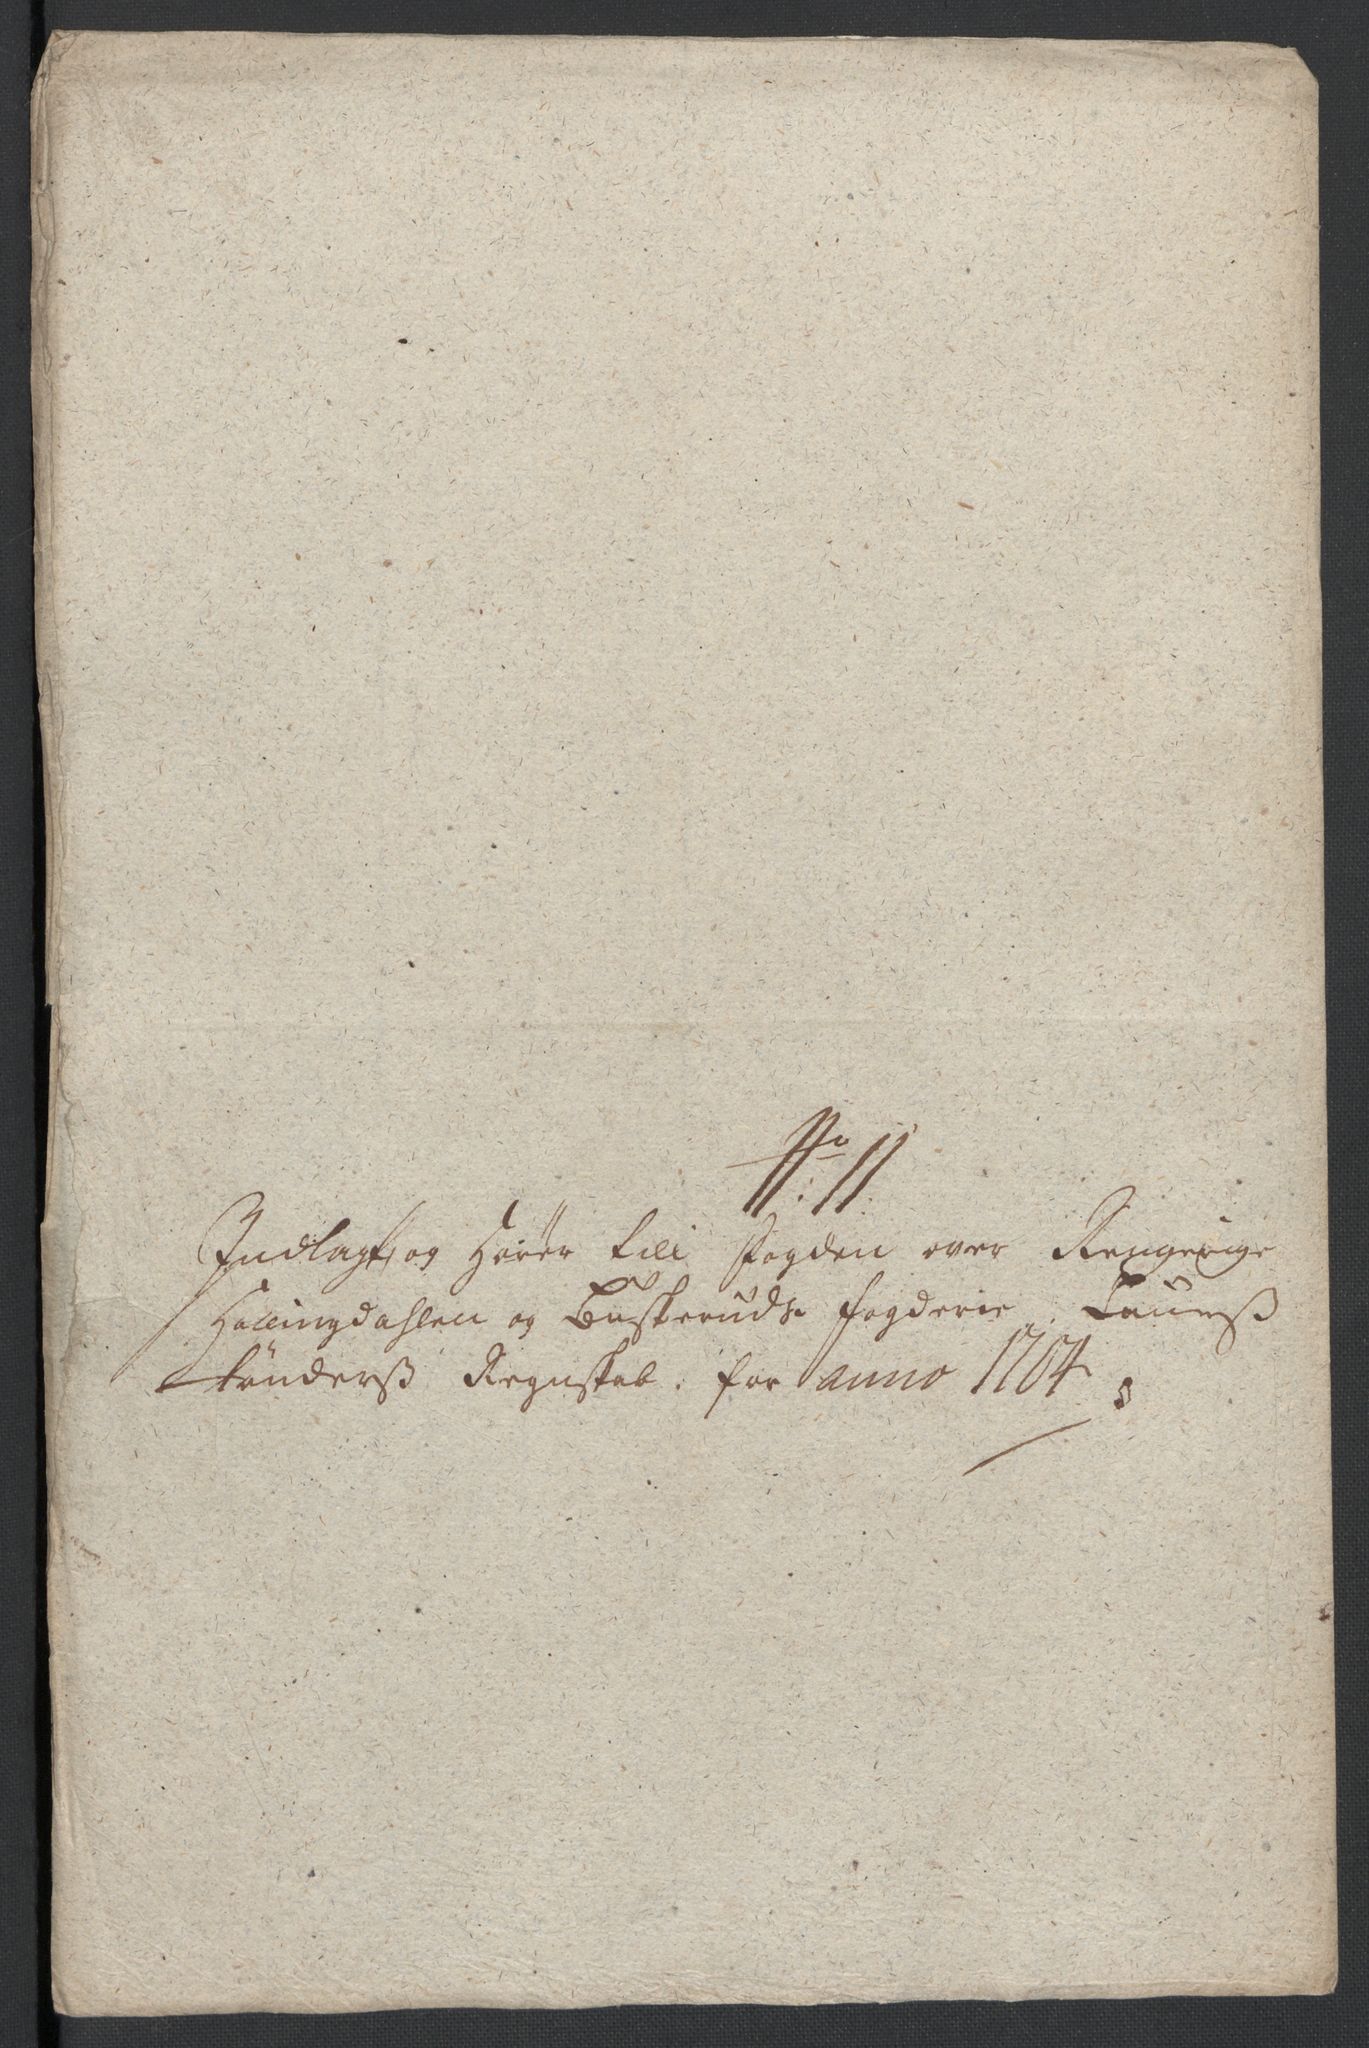 No: 11.
Indlagt, og Hörer till Fogden over Ringerige
Hallingdahlen og Buskeruds fogderie, Lauerß
Tönderß Regnskab. for anno 1704